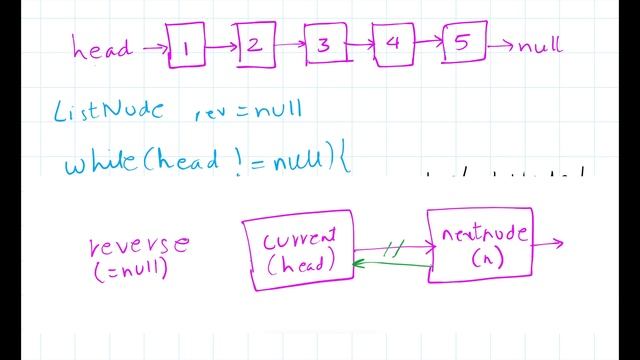 head → 1 → 2 → 3 → 4 → 5 → null
ListNode rev = null
while(head != null){
reverse
(=null)
current
(head)
nextnode
(n)